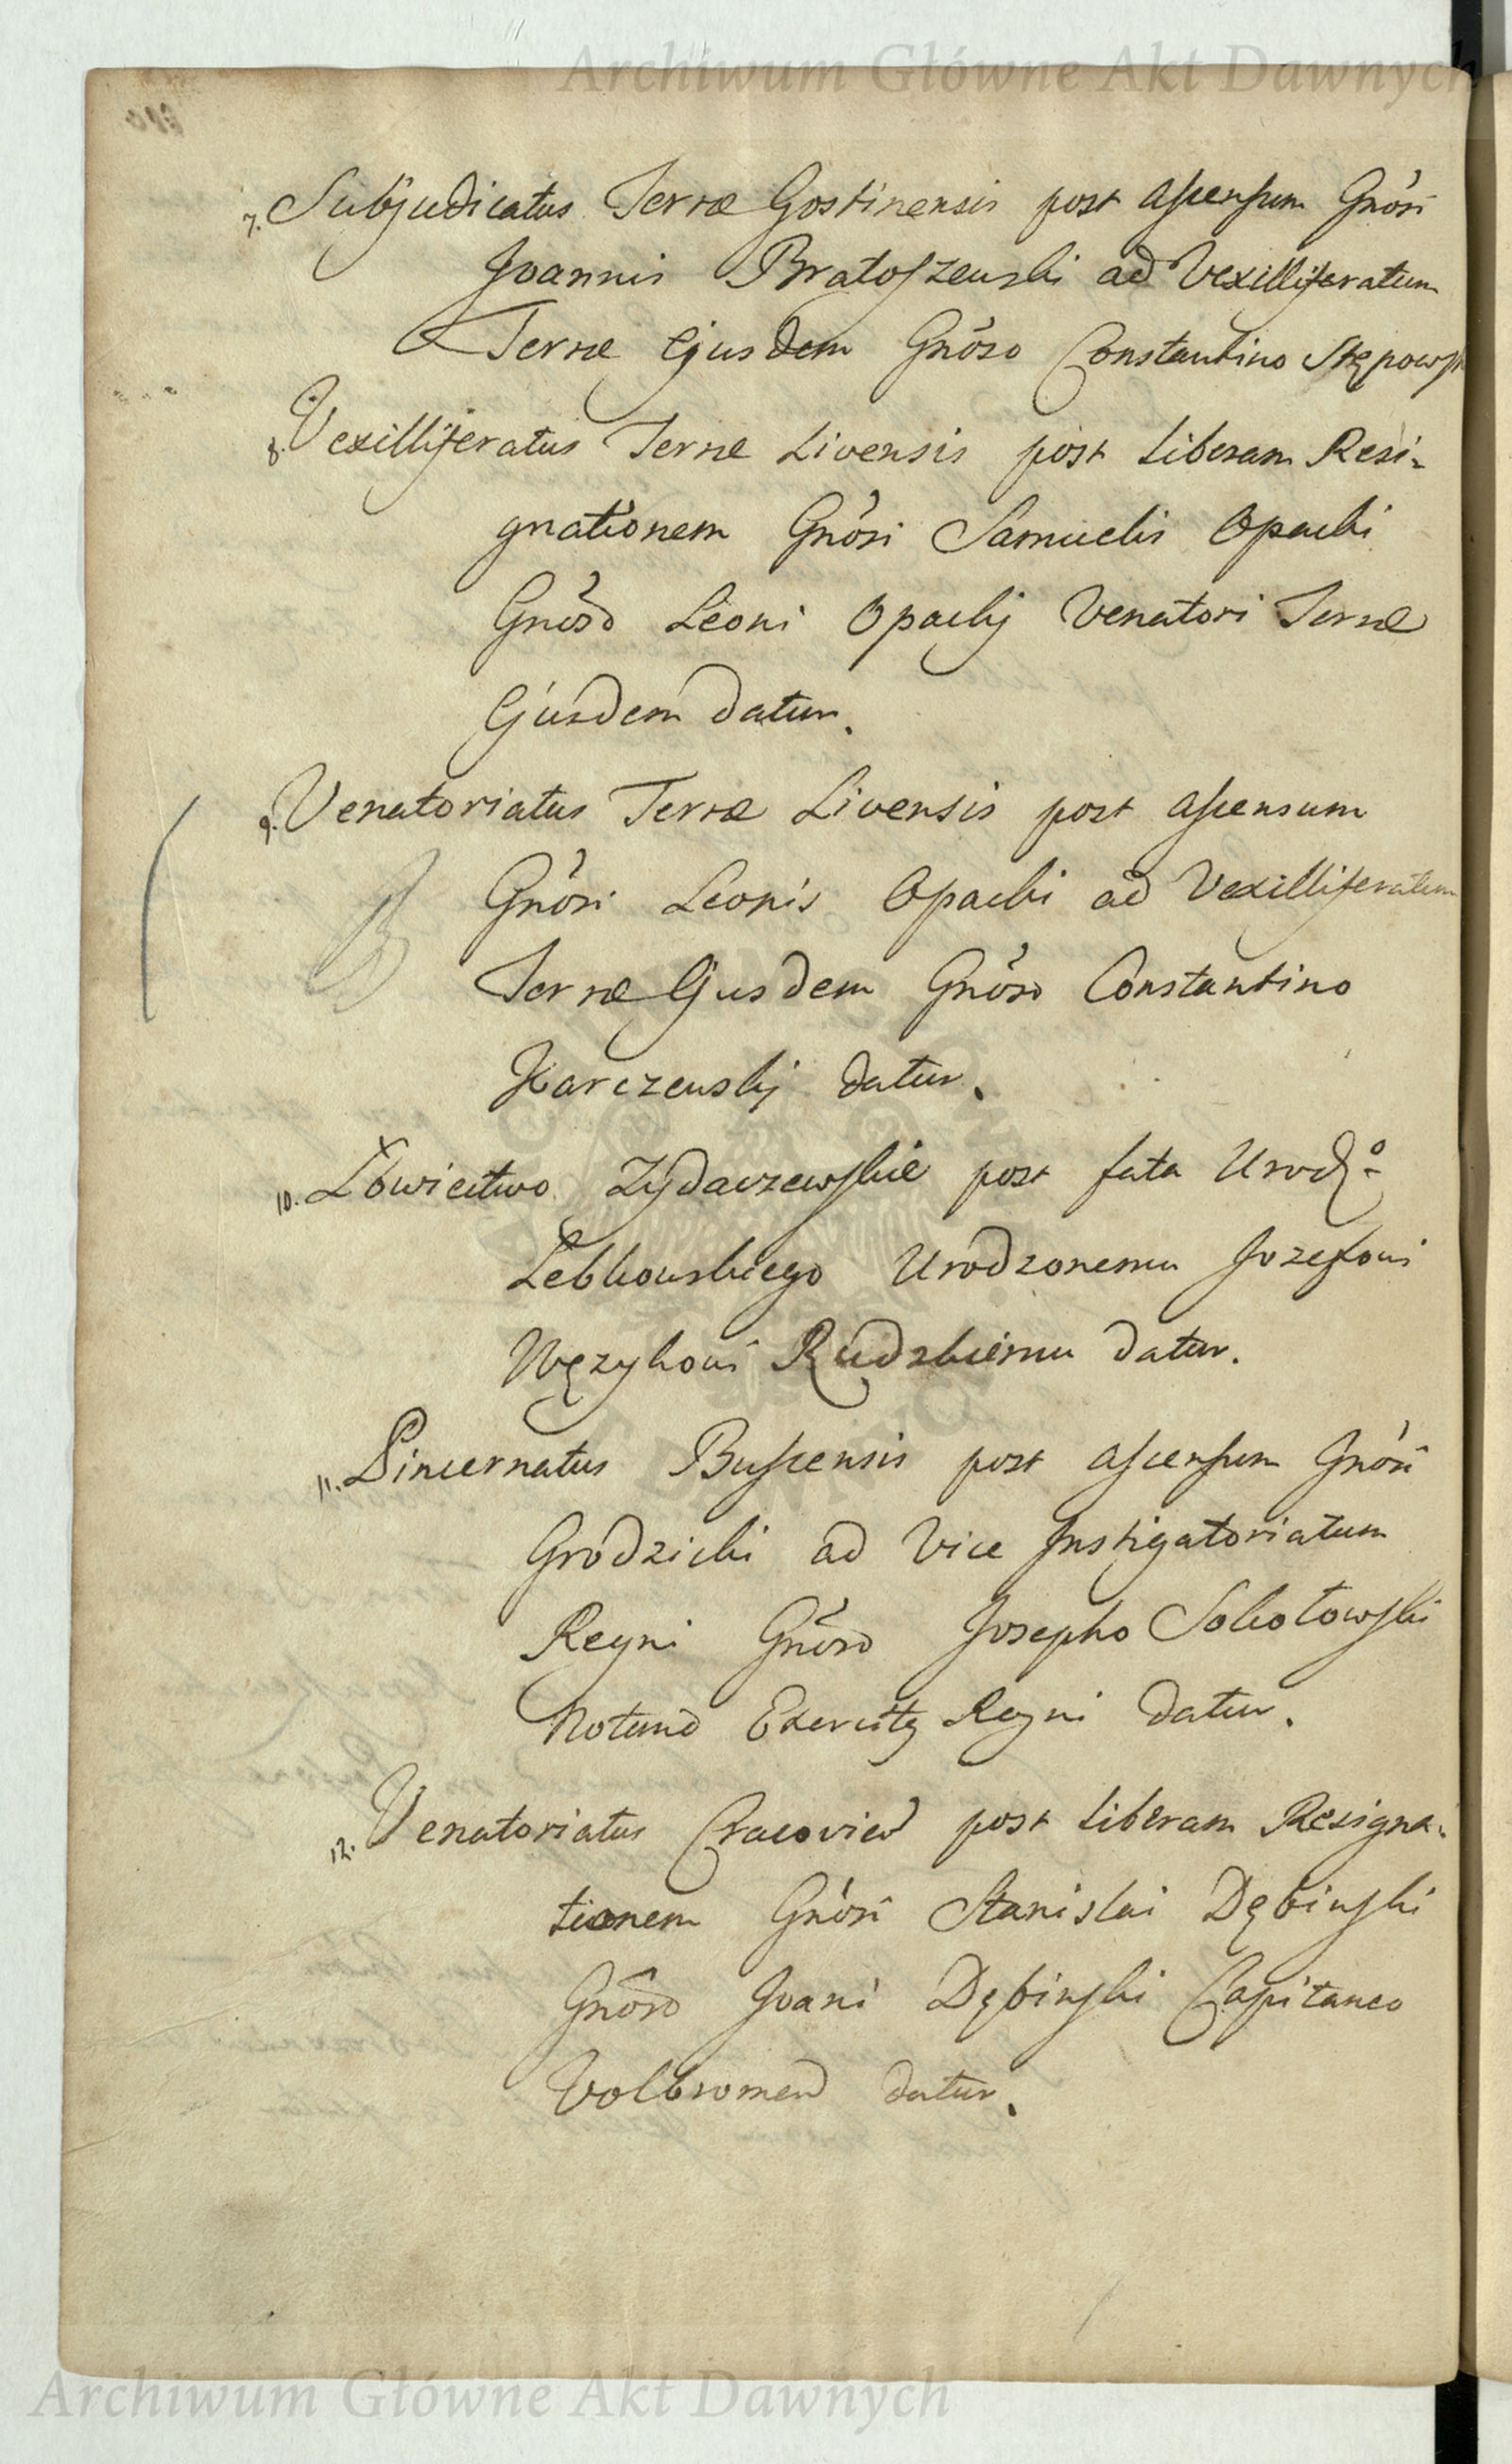 Archiwum Główne Akt Dawnych
7. Subjudicatus Terræ Gostinensis post ascensum Gnôsi
Joannis Bratoszewski ad Vexilliferatum
Terræ Ejusdem Gnôso Constantino Stępowski
8. Vexilliferatus Terræ Livensis post Liberam Resi-
gnationem Gnôsi Samuelis Opacki
Gnôso Leoni Opackj Venatori Terræ
Ejusdem datur.
9. Venatoriatus Terræ Livensis post ascensum
Gnôsi Leonis Opacki ad Vexilliferatum
Terræ Ejusdem Gnôso Constantino
Karczewskj datur.
10. Łowiectwo Zydaczewskie post fata Urodz⁰
Łebkowskiego Urodzonemu Jozefowi
Węzykowi Rudzkiemu datur.
11. Pincernatus Buscensis post ascensum Gnôsi
Grodzicki ad Vice Instigatoriatum
Regni Gnôso Josepho Sokołowski
Exercitq Regni datur.
12. Venatoriatus post Liberam Resigna-
tionem Gnôsi Stanislai Dębinski
Gnôso Joani Dębinski Capitaneo
datur.
Archiwum Główne Akt Dawnych